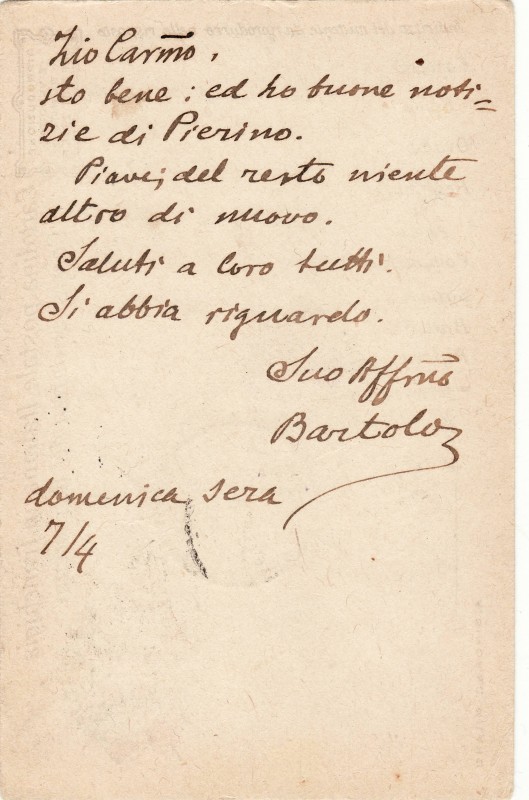 Zio Carmo,
sto bene: ed ho buone noti=
zie di Pierino.
Piove; del resto niente
altro di nuovo.
Saluti a loro tutti.
Si abbia riguardo.
Suo Affmo
Bartolo
domenica sera
7/4